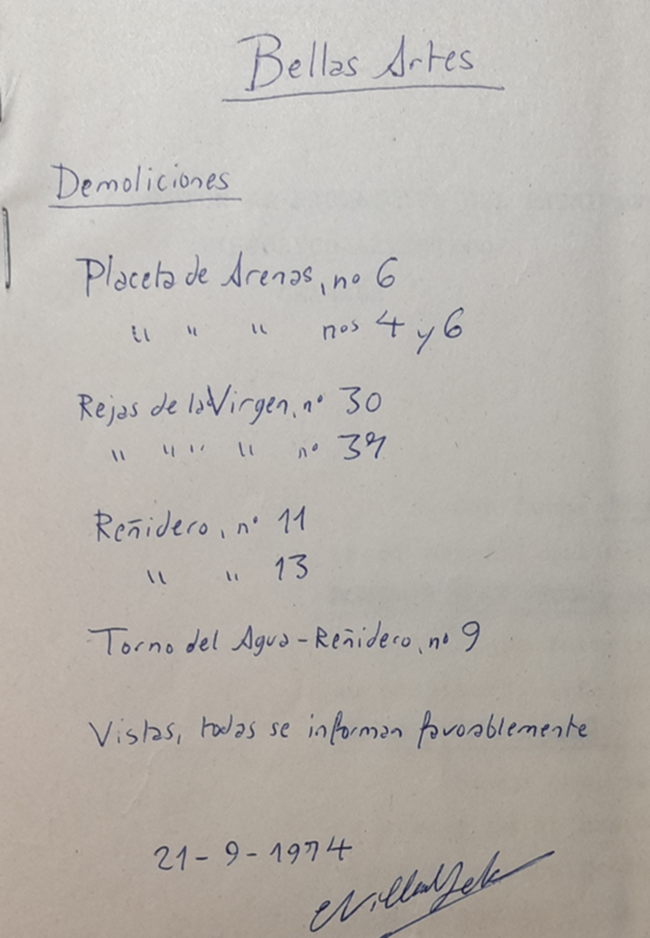 Bellas Artes
Demoliciones
Placeta de Arenas, nº 6
" " " nos 4 y 6
Rejas de la Virgen, nº 30
" " " " nº 37
Reñidero, nº 11
" " 13
Torno del Agua - Reñidero, nº 9
Vistas, todas se informan favorablemente
21-9-1974